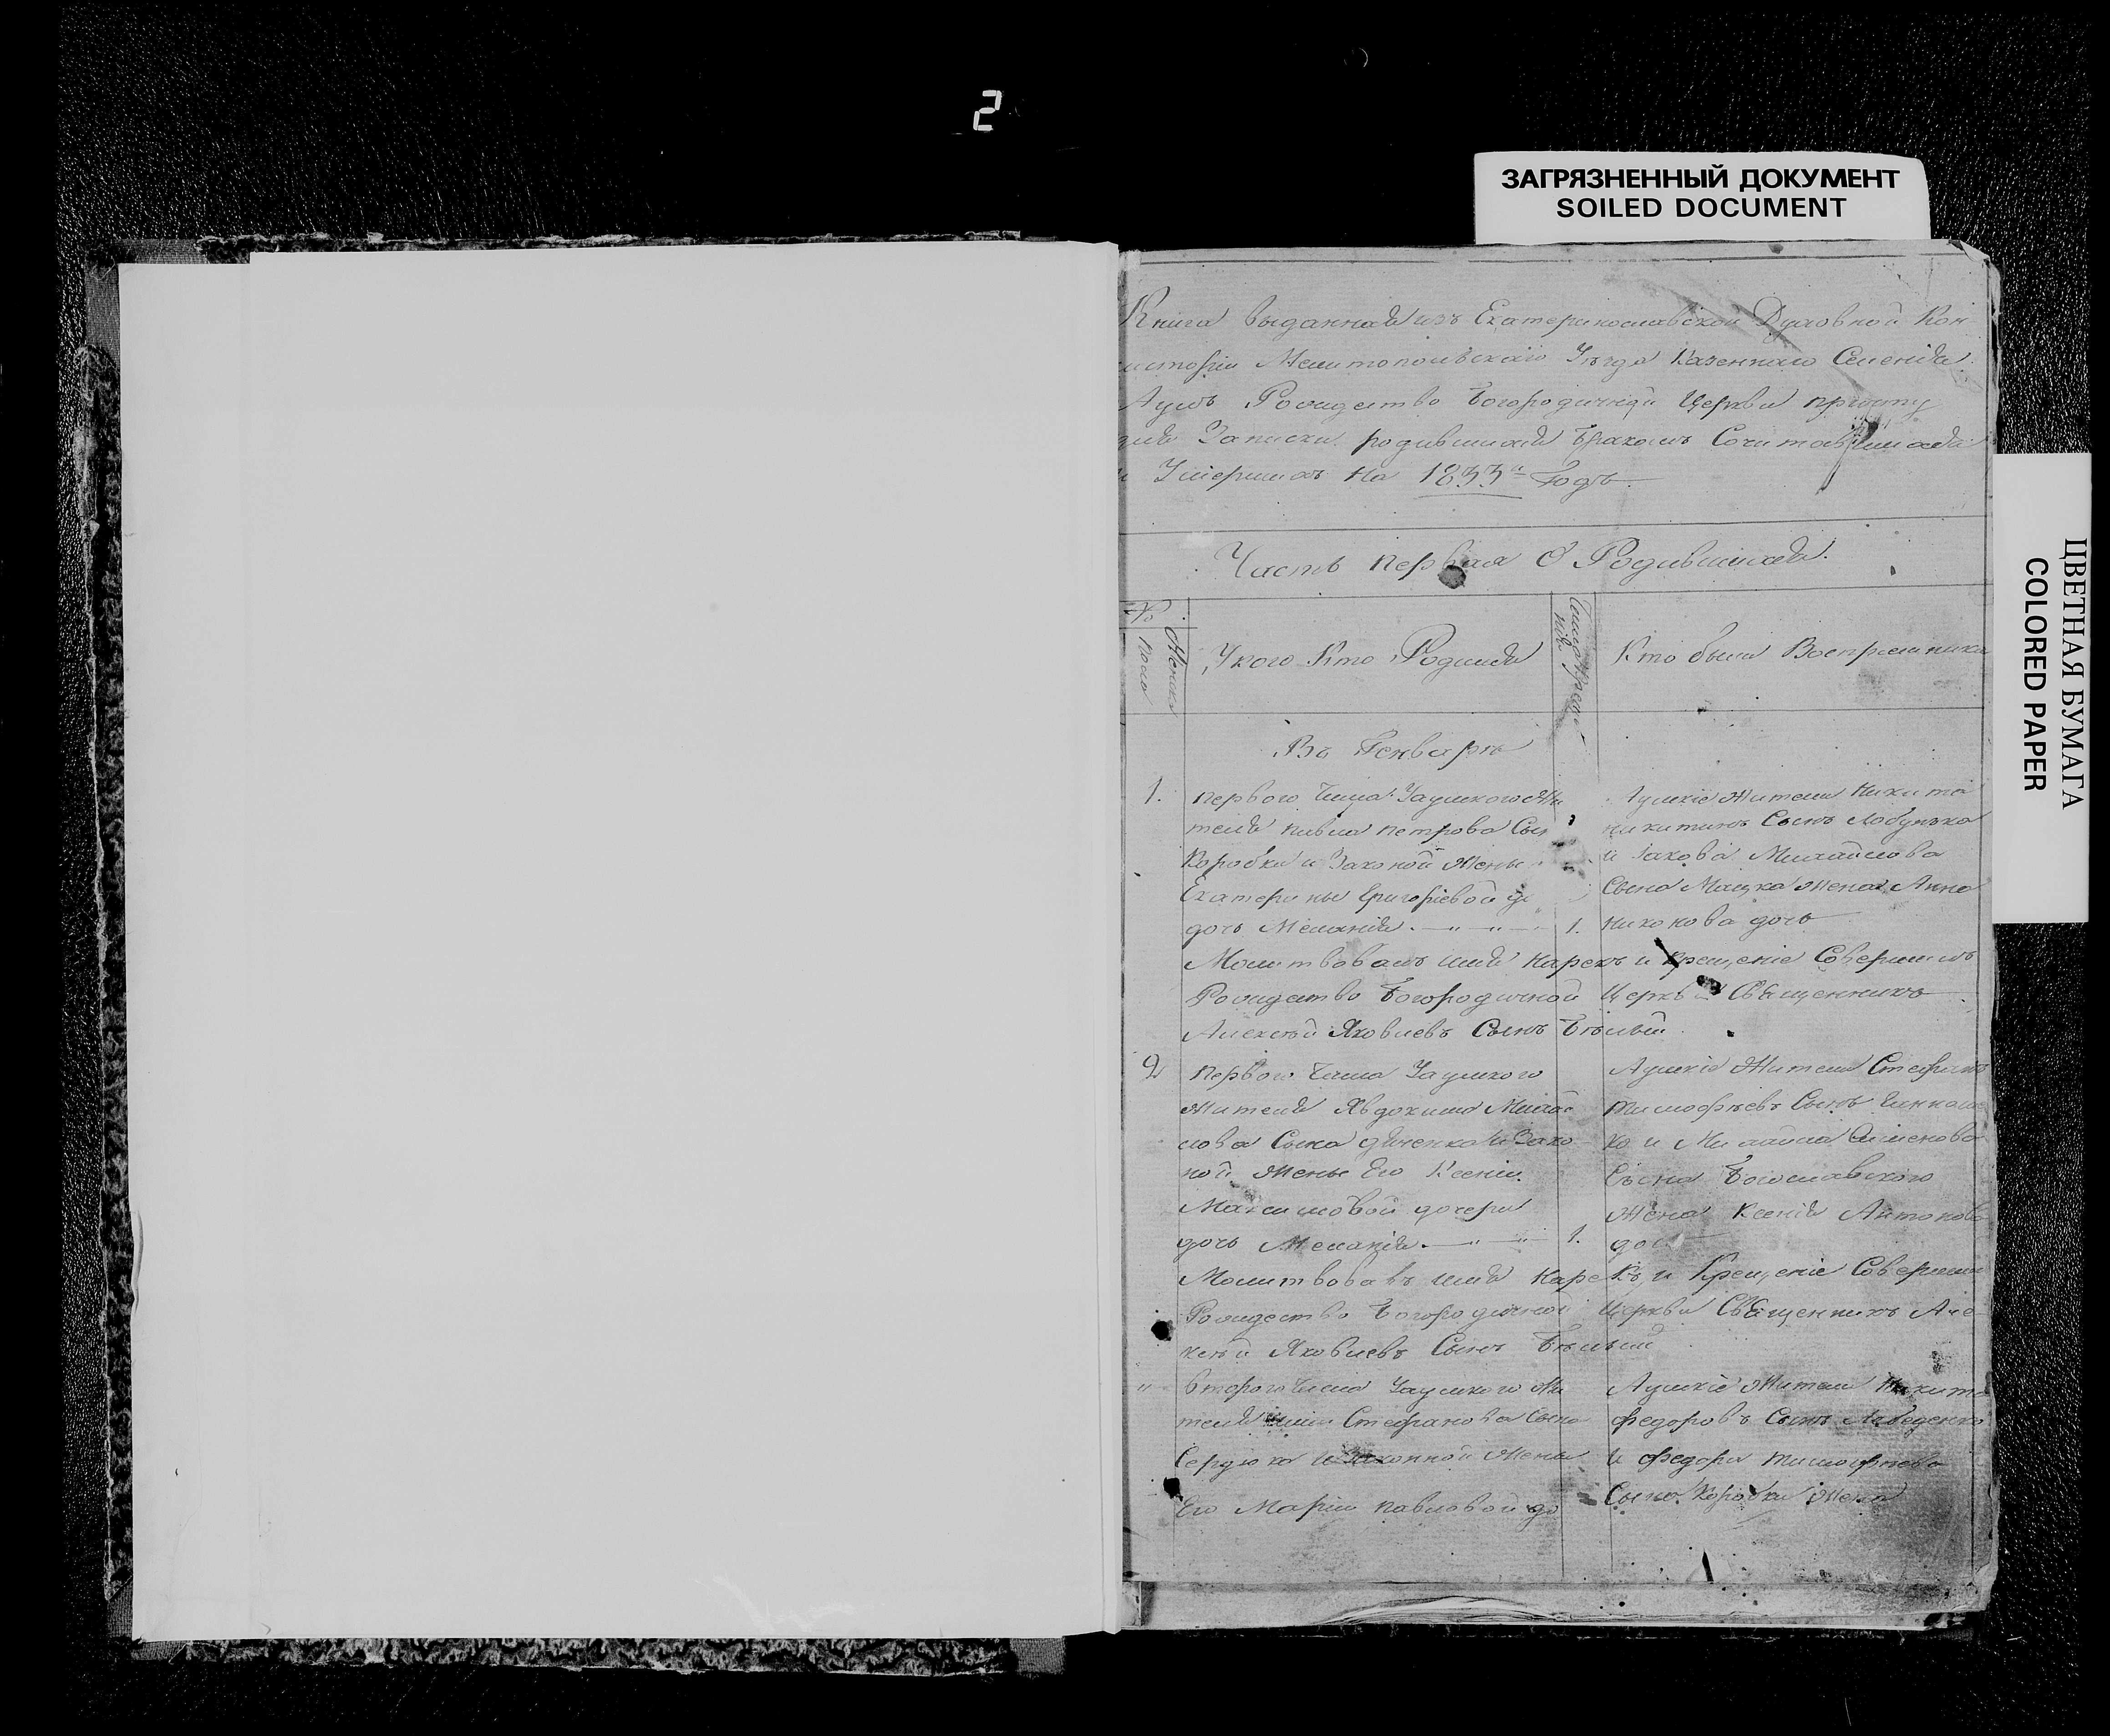 2
ЗАГРЯЗНЕННЫЙ ДОКУМЕНТ
SOILED DOCUMENT
ЦВЕТНАЯ БУМАГА
COLORED PAPER
Книга выданная изъ Екатеринославской Духовной Кон
систоріи Мелитопольскаго Уѣзда Казеннаго Селенія
Рождество Богородичной Церкви причту
для Записки родившихся бракомъ Сочитавшихся
и Умершихъ на 1833й Годъ.
Часть первая О Родившихся.
№
Мужеска
Женска
У кого Кто Родился
Кто были Воспріемники
Въ Генварѣ
1.
первого Числа Жи
теля павла петрова Сын
Коробки и Законой Жены
Екатерины Григоріевой до
дочь Меланія. — " — " — 1.
Жители Никита
никитинъ Сынъ
и Іакова Михайлова
Сына Жена Анна
Никонова дочь
Молитвовалъ имя Нарекъ и крещеніе Совершилъ
Рождество Богородичной Церкви Священникъ
Алексѣй Яковлевъ Сынъ Бѣлый.
2
первого Числа
Жителя Явдокима Михай
лова Сына и Зако
ной Жены Его Ксеніи
Максимовой дочери
дочь Меланія. — " — " — 1.
Жители Стефанъ
тимофѣевъ Сынъ
ко и Михаила Сименова
Сына Богославского
Жена Ксенія Антонова
дочь
Молитвовавъ имя Нарекъ и Крещеніе Соверши
Рождество Богородичной Церкви Священникъ Але
ксѣй Яковлевъ Сынъ Бѣлый
"
второго Числа Жи
теля Стефанова Сына
Сердюка и Законной Жены
Его Маріи павловой до
Жители Никита
федоровъ Сынъ
и федора тимофѣева
Сына Коробки Жена